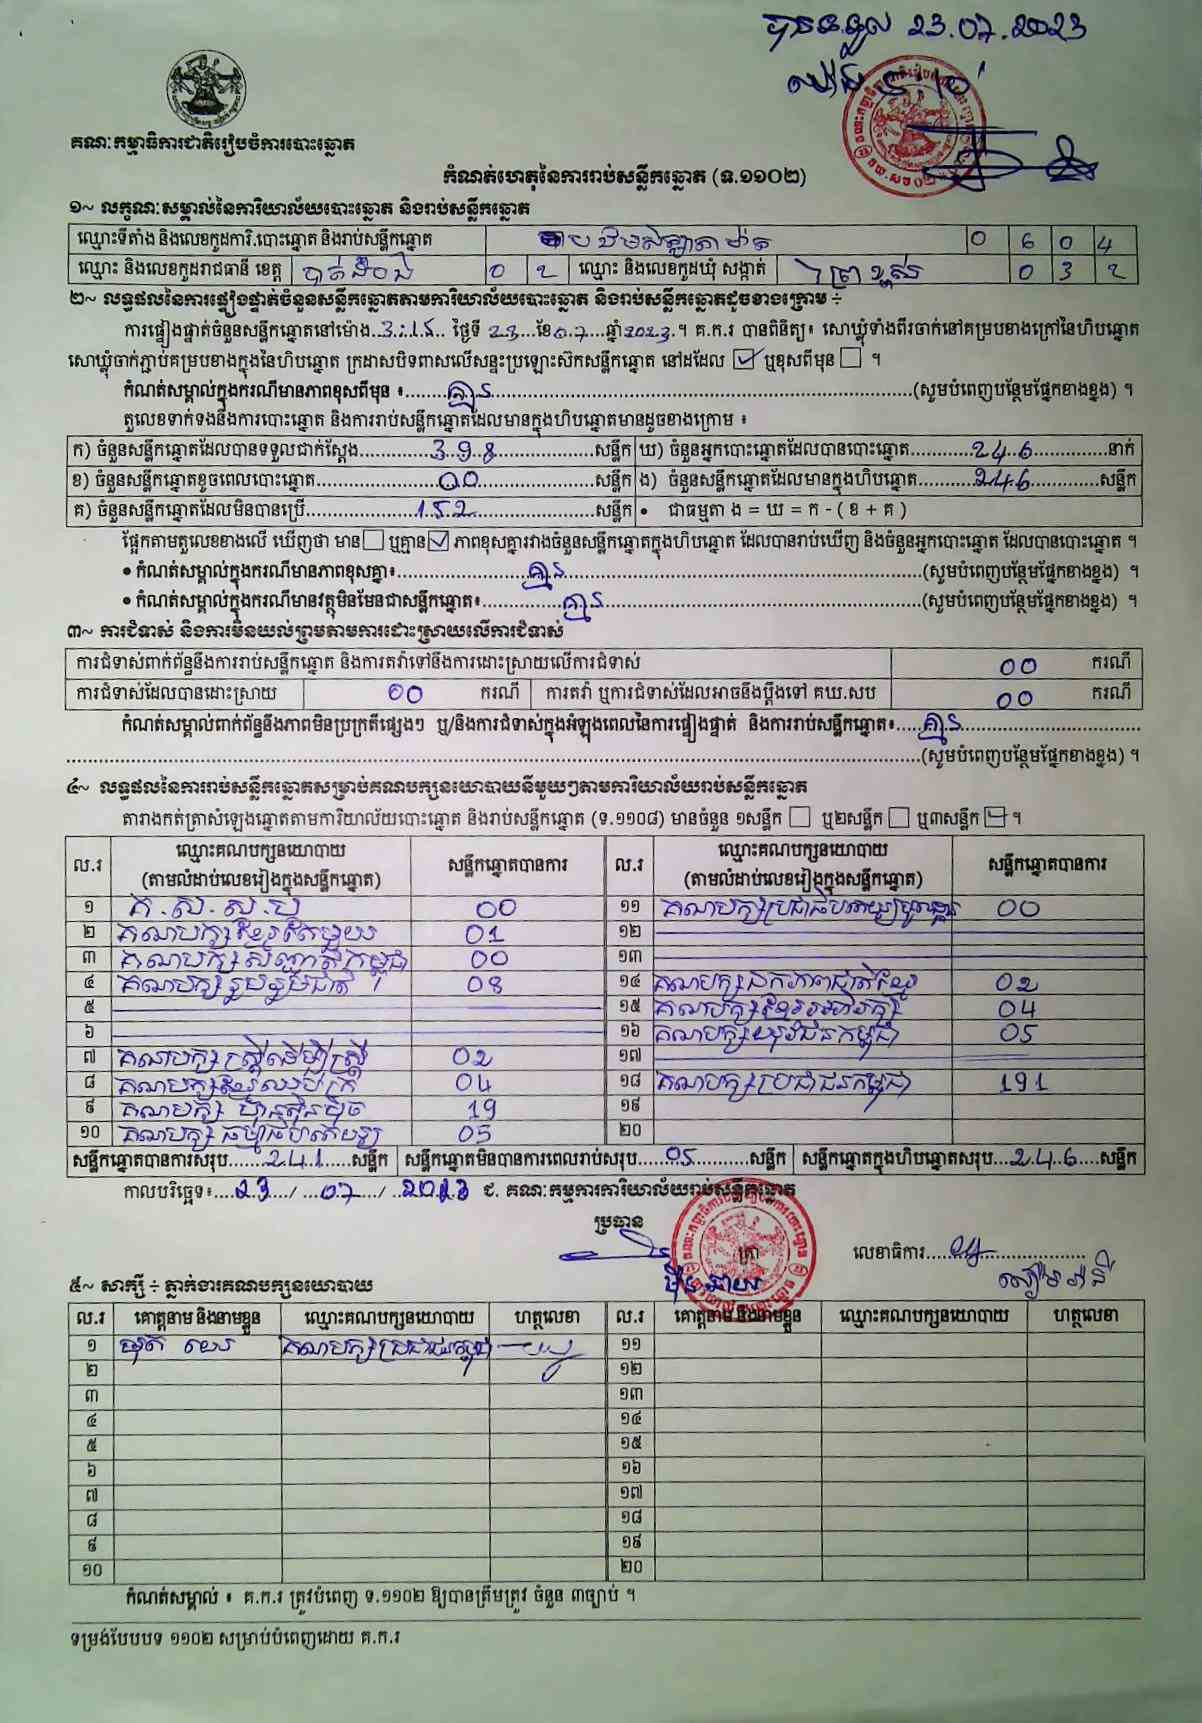 បានទទួល 23.07.2023
គណៈកម្មាធិការជាតិរៀបចំការបោះឆ្នោត
កំណត់ហេតុនៃការរាប់សន្លឹកឆ្នោត (ទ.១១០២)
១~ លក្ខណៈសម្គាល់នៃការិយាល័យបោះឆ្នោត និងរាប់សន្លឹកឆ្នោត
ឈ្មោះទីតាំង និងលេខកូដការិ.បោះឆ្នោត និងរាប់សន្លឹកឆ្នោត 0 6 0 4
ឈ្មោះ និងលេខកូដរាជធានី ខេត្ត បាត់ដំបង 0 2 ឈ្មោះ និងលេខកូដឃុំ សង្កាត់ ព្រៃខ្ពស់ 0 3 2
២~ លទ្ធផលនៃការផ្ទៀងផ្ទាត់ចំនួនសន្លឹកឆ្នោតតាមការិយាល័យបោះឆ្នោត និងរាប់សន្លឹកឆ្នោតដូចខាងក្រោម ÷
ការផ្ទៀងផ្ទាត់ចំនួនសន្លឹកឆ្នោតនៅម៉ោង..3:15.. ថ្ងៃទី..23..ខែ..07..ឆ្នាំ2023.។ គ.ក.រ បានពិនិត្យ៖ សោឃ្លុំទាំងពីរចាក់នៅគម្របខាងក្រៅនៃហិបឆ្នោត
សោឃ្លុំចាក់ភ្ជាប់គម្របខាងក្នុងនៃហិបឆ្នោត ក្រដាសបិទពាសលើសន្ទះប្រឡោះស៊កសន្លឹកឆ្នោត នៅដដែល ☑ ឬខុសពីមុន ☐ ។
កំណត់សម្គាល់ក្នុងករណីមានភាពខុសពីមុន ៖ គ្មាន (សូមបំពេញបន្ថែមផ្នែកខាងខ្នង) ។
តួលេខទាក់ទងនឹងការបោះឆ្នោត និងការរាប់សន្លឹកឆ្នោតដែលមានក្នុងហិបឆ្នោតមានដូចខាងក្រោម ៖
ក) ចំនួនសន្លឹកឆ្នោតដែលបានទទួលជាក់ស្តែង 398 សន្លឹក ឃ) ចំនួនអ្នកបោះឆ្នោតដែលបានបោះឆ្នោត 246 នាក់
ខ) ចំនួនសន្លឹកឆ្នោតខូចពេលបោះឆ្នោត 00 សន្លឹក ង) ចំនួនសន្លឹកឆ្នោតដែលមានក្នុងហិបឆ្នោត 246 សន្លឹក
គ) ចំនួនសន្លឹកឆ្នោតដែលមិនបានប្រើ 152 សន្លឹក • ជាធម្មតា ង = ឃ = ក - ( ខ + គ )
ផ្អែកតាមតួលេខខាងលើ ឃើញថា មាន ☐ ឬគ្មាន ☑ ភាពខុសគ្នារវាងចំនួនសន្លឹកឆ្នោតក្នុងហិបឆ្នោត ដែលបានរាប់ឃើញ និងចំនួនអ្នកបោះឆ្នោត ដែលបានបោះឆ្នោត ។
• កំណត់សម្គាល់ក្នុងករណីមានភាពខុសគ្នា៖ គ្មាន (សូមបំពេញបន្ថែមផ្នែកខាងខ្នង) ។
• កំណត់សម្គាល់ក្នុងករណីមានវត្ថុមិនមែនជាសន្លឹកឆ្នោត៖ គ្មាន (សូមបំពេញបន្ថែមផ្នែកខាងខ្នង) ។
៣~ ការជំទាស់ និងការមិនយល់ព្រមតាមការដោះស្រាយលើការជំទាស់
ការជំទាស់ពាក់ព័ន្ធនឹងការរាប់សន្លឹកឆ្នោត និងការតវ៉ាទៅនឹងការដោះស្រាយលើការជំទាស់ 00 ករណី
ការជំទាស់ដែលបានដោះស្រាយ 00 ករណី ការតវ៉ា ឬការជំទាស់ដែលអាចនឹងប្តឹងទៅ គឃ.សប 00 ករណី
កំណត់សម្គាល់ពាក់ព័ន្ធនឹងភាពមិនប្រក្រតីផ្សេងៗ ឬ/និងការជំទាស់ក្នុងអំឡុងពេលនៃការផ្ទៀងផ្ទាត់ និងការរាប់សន្លឹកឆ្នោត៖ គ្មាន
(សូមបំពេញបន្ថែមផ្នែកខាងខ្នង) ។
៤~ លទ្ធផលនៃការរាប់សន្លឹកឆ្នោតសម្រាប់គណបក្សនយោបាយនីមួយៗតាមការិយាល័យរាប់សន្លឹកឆ្នោត
តារាងកត់ត្រាសំឡេងឆ្នោតតាមការិយាល័យបោះឆ្នោត និងរាប់សន្លឹកឆ្នោត (ទ.១១០៨) មានចំនួន ១សន្លឹក ☐ ឬ២សន្លឹក ☐ ឬ៣សន្លឹក ☑ ។
ល.រ ឈ្មោះគណបក្សនយោបាយ (តាមលំដាប់លេខរៀងក្នុងសន្លឹកឆ្នោត) សន្លឹកឆ្នោតបានការ ល.រ ឈ្មោះគណបក្សនយោបាយ (តាមលំដាប់លេខរៀងក្នុងសន្លឹកឆ្នោត) សន្លឹកឆ្នោតបានការ
១ គ.ស.ស.ប 00 ១១ គណបក្សប្រជាធិបតេយ្យមូលដ្ឋាន 00
២ គណបក្សខ្មែរតែមួយ 01 ១២
៣ គណបក្សសញ្ជាតិកម្ពុជា 00 ១៣
៤ គណបក្សរួបរួមជាតិ 08 ១៤ គណបក្សឯកភាពជាតិខ្មែរ 02
៥ ១៥ គណបក្សខ្មែរអភិរក្ស 04
៦ ១៦ គណបក្សយុវជនកម្ពុជា 05
៧ គណបក្សស្ត្រីដើម្បីស្ត្រី 02 ១៧
៨ គណបក្សខ្មែរឈប់ក្រ 04 ១៨ គណបក្សប្រជាជនកម្ពុជា 191
៩ គណបក្ស ហ៊្វុនស៊ិនប៉ិច 19 ១៩
១០ គណបក្ស ធម្មាធិបតេយ្យ 05 ២០
សន្លឹកឆ្នោតបានការសរុប 241 សន្លឹក សន្លឹកឆ្នោតមិនបានការពេលរាប់សរុប 05 សន្លឹក សន្លឹកឆ្នោតក្នុងហិបឆ្នោតសរុប 246 សន្លឹក
កាលបរិច្ឆេទ៖ 23 / 07 / 2023 ជ. គណៈកម្មការការិយាល័យរាប់សន្លឹកឆ្នោត
ប្រធាន
ត្រា លេខាធិការ
៥~ សាក្សី ÷ ភ្នាក់ងារគណបក្សនយោបាយ
ល.រ គោត្តនាម និងនាមខ្លួន ឈ្មោះគណបក្សនយោបាយ ហត្ថលេខា ល.រ គោត្តនាម និងនាមខ្លួន ឈ្មោះគណបក្សនយោបាយ ហត្ថលេខា
១ គណបក្សប្រជាជនកម្ពុជា ១១
២ ១២
៣ ១៣
៤ ១៤
៥ ១៥
៦ ១៦
៧ ១៧
៨ ១៨
៩ ១៩
១០ ២០
កំណត់សម្គាល់ ៖ គ.ក.រ ត្រូវបំពេញ ទ.១១០២ ឱ្យបានត្រឹមត្រូវ ចំនួន ៣ច្បាប់ ។
ទម្រង់បែបបទ ១១០២ សម្រាប់បំពេញដោយ គ.ក.រ